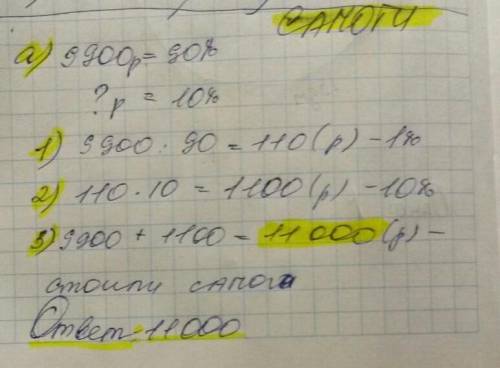 САПОГИ
а) 9900р = 90%
? р = 10%
1) 9900 : 90 = 110 (р) - 1%
2) 110 · 10 = 1100 (р) - 10%
3) 9900 + 1100 = 11 000 (р) -
стоили сапоги
Ответ: 11000